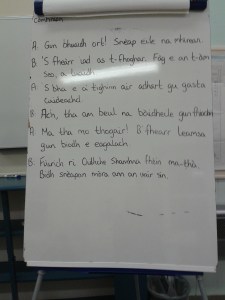 A: Gun bhuidh ort! Snèap eile na mhionan.
B: 'S fheàrr ud as t-fhoghar. Fàg e an t-àm
seo, a bhalaich.
A: S bha e a' tighinn air adhart gu gasta
cuideachd.
B: Ach, tha am beul na bòidheile gun fhiaclan
A: Ma tha mo thogair! B' fheàrr leamsa
gun biodh e eagalach.
B: Fuirich ri Oidhche Shamhna fhèin ma-thà.
Bidh snèapan mòra ann an uair sin.